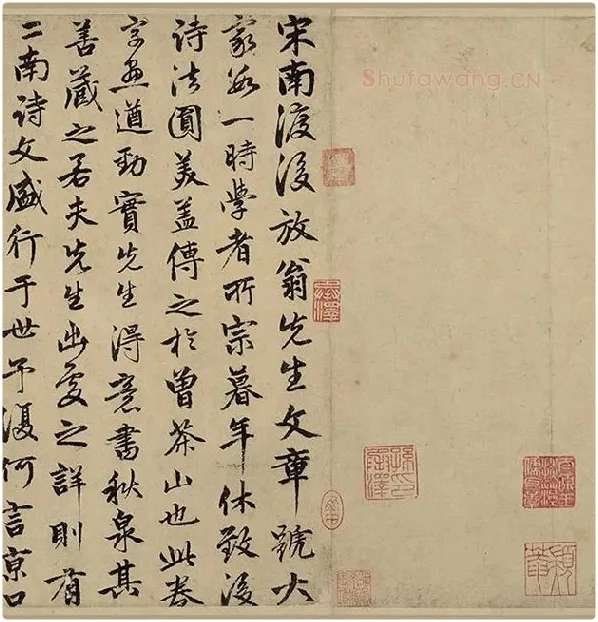 Shufawang.CN
宋南渡後放翁先生文章號大
家數一時學者所宗暮年休致後
詩法圓美蓋傳之於曾茶山也此卷
字畫遒勁實先生得意書秋泉其
善藏之若夫先生出處之詳則有
二南詩文盛行于世予復何言京口